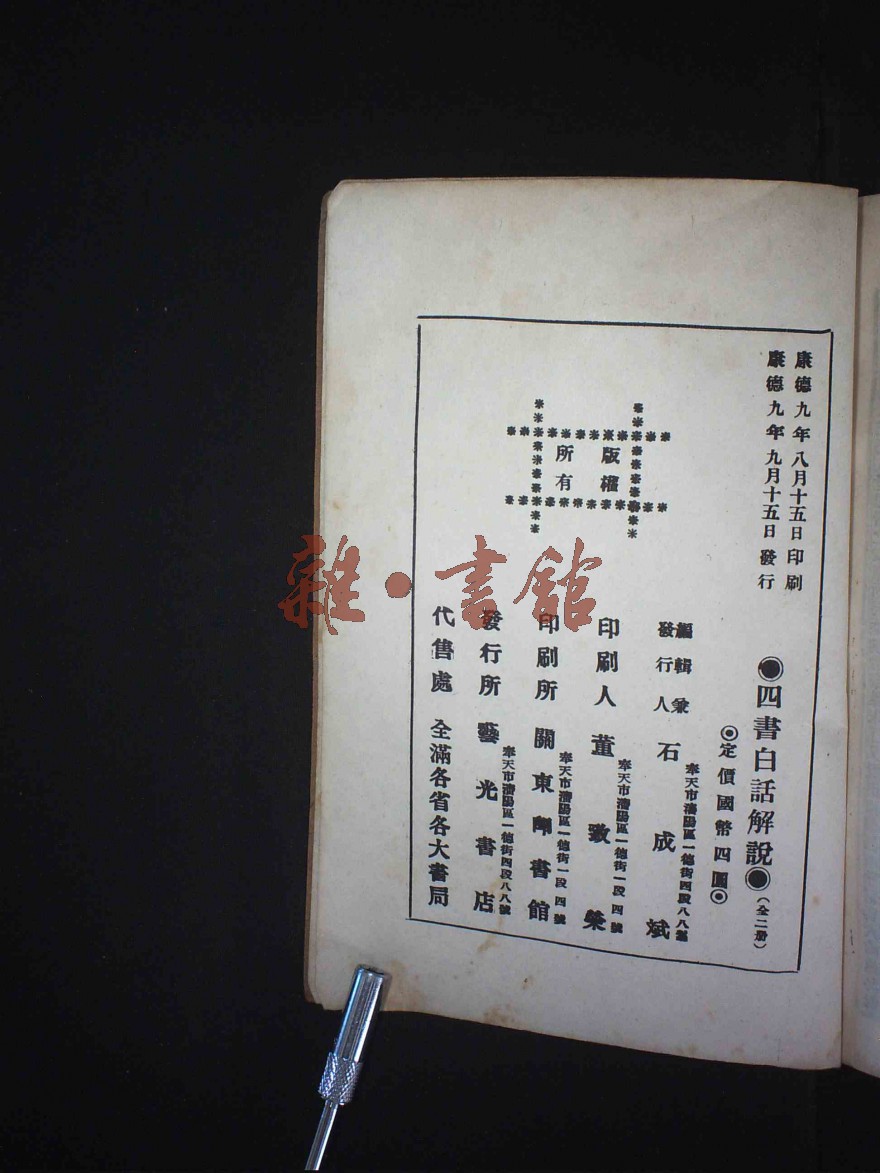 康德九年八月十五日印刷
康德九年九月十五日發行
●四書白話解說●(全二册)
◎定價國幣四圓◎
版權
所有
編輯兼
發行人
奉天市瀋陽區一德街四段八八號
石成斌
印刷人
奉天市瀋陽區一德街一段四號
董致榮
印刷所
奉天市瀋陽區一德街一段四號
關東印書館
發行所
奉天市瀋陽區一德街四段八八號
藝光書店
代售處 全滿各省各大書局
雜·書館